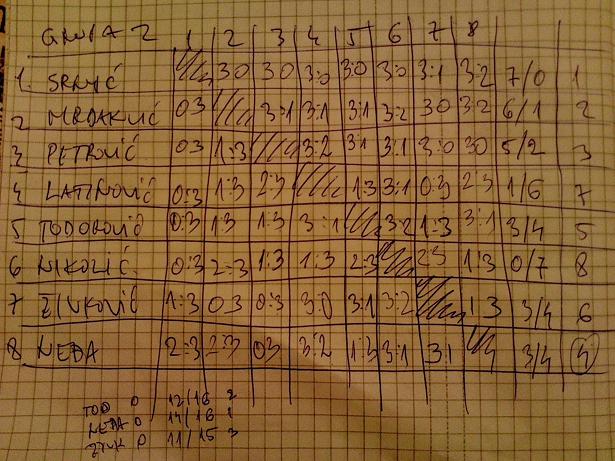 GRUPA 2 1 2 3 4 5 6 7 8
1. SRNIĆ 3:0 3:0 3:0 3:0 3:0 3:1 3:2 7/0 1
2 MRDAKVIĆ 0:3 3:1 3:1 3:1 3:2 3:0 3:2 6/1 2
3 PETROVIĆ 0:3 1:3 3:2 3:1 3:1 3:0 3:0 5/2 3
4 LATINOVIĆ 0:3 1:3 2:3 1:3 3:1 0:3 2:3 1/6 7
5 TODOROVIĆ 0:3 1:3 1:3 3:1 3:2 1:3 3:1 3/4 5
6 NIKOLIĆ 0:3 2:3 1:3 1:3 2:3 2:3 1:3 0/7 8
7 ŽIVKOVIĆ 1:3 0:3 0:3 3:0 3:1 3:2 1:3 3/4 6
8 NEĐA 2:3 2:3 0:3 3:2 1:3 3:1 3:1 3/4 4
TOD 0 12/16 2
NEĐA 0 14/16 1
ŽIVK 0 11/15 3